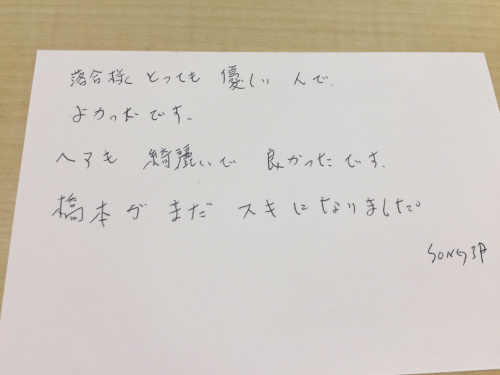 落合様 とっても 優しい んで、
よかったです。
ヘアも 綺麗いで 良かったです。
橋本が まだ スキになりました。